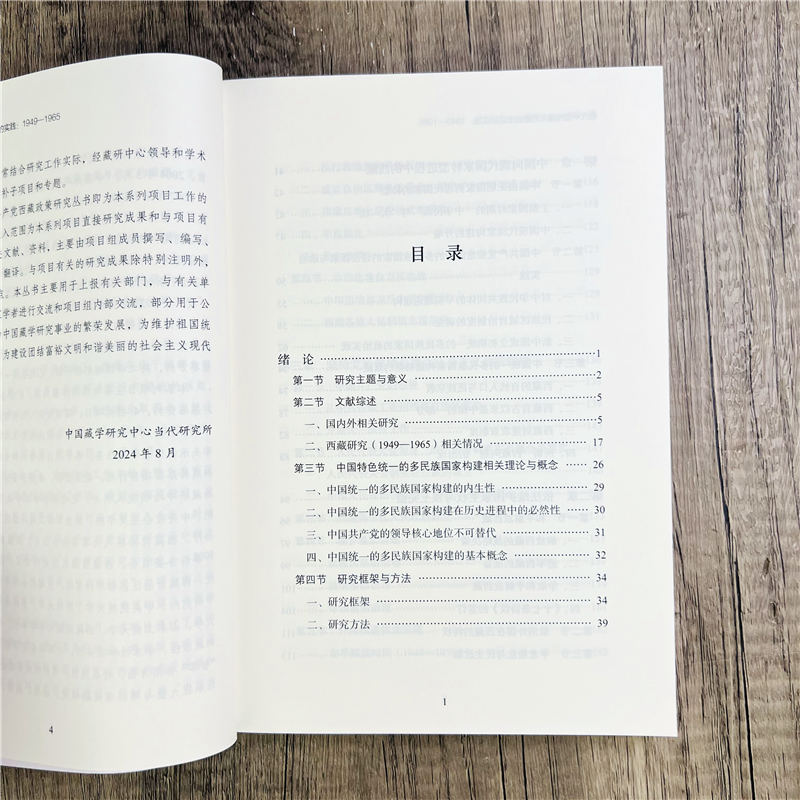 的实践：1949—1965
常结合研究工作实际，经藏研中心领导和学术
补子项目和专题。
产党西藏政策研究丛书即为本系列项目工作的
入范围为本系列项目直接研究成果和与项目有
文献、资料，主要由项目组成员撰写、编写、
翻译。与项目有关的研究成果除特别注明外，
点。本丛书主要用于上报有关部门，与有关单
学者进行交流和项目组内部交流，部分用于公
中国藏学研究事业的繁荣发展，为维护祖国统
为建设团结富裕文明和谐美丽的社会主义现代
中国藏学研究中心当代研究所
2024 年 8 月
4
目 录
绪 论 ……………………………………………… 1
第一节 研究主题与意义 ……………………………… 2
第二节 文献综述 ……………………………………… 5
一、国内外相关研究 ………………………………… 5
二、西藏研究（1949—1965）相关情况 …………… 17
第三节 中国特色统一的多民族国家构建相关理论与概念 …… 26
一、中国统一的多民族国家构建的内生性 ………… 29
二、中国统一的多民族国家构建在历史进程中的必然性 … 30
三、中国共产党的领导核心地位不可替代 ………… 31
四、中国统一的多民族国家构建的基本概念 ……… 32
第四节 研究框架与方法 ……………………………… 34
一、研究框架 ………………………………………… 34
二、研究方法 ………………………………………… 39
1